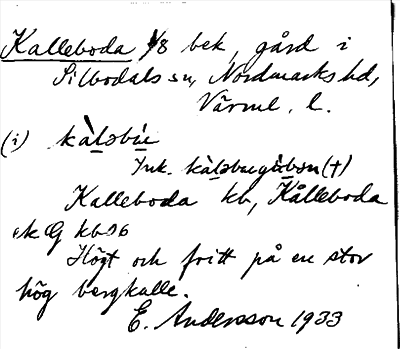 Kalleboda 1/8 bek, gård i
Silbodals sn, Nordmarks hd,
Värml. l.
(i) kàlɔbu̇
Ink. kàlɔbugùbɔn (+)
Kalleboda kb, Kålleboda
ek G kb 06
Högt och fritt på en stor
hög bergkulle.
E. Andersson 1933